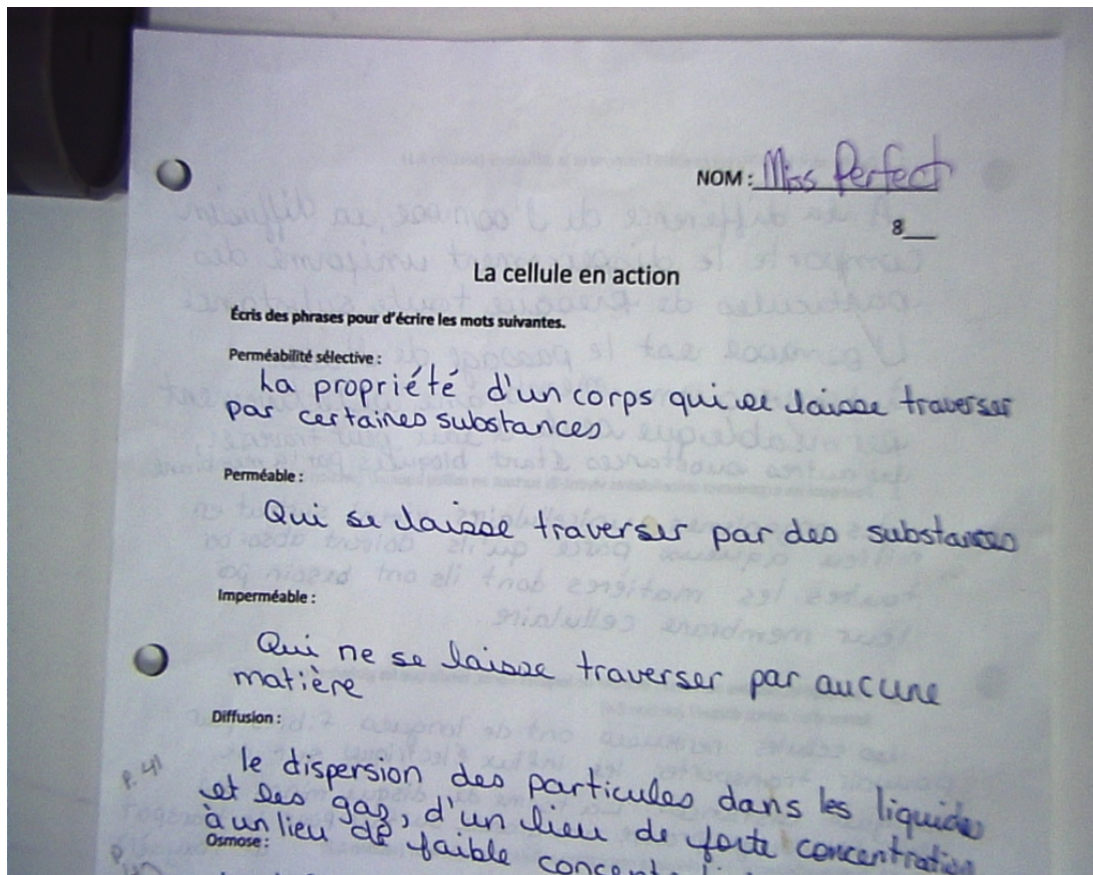 NOM : Miss Perfect
8__
La cellule en action
Écris des phrases pour d'écrire les mots suivantes.
Perméabilité sélective :
La propriété d'un corps qui se laisse traverser
par certaines substances
Perméable :
Qui se laisse traverser par des substances
Imperméable :
Qui ne se laisse traverser par aucune
matière
Diffusion :
p. 41
le dispersion des particules dans les liquides
et les gaz, d'un lieu de forte concentration
à un lieu de faible
Osmose :